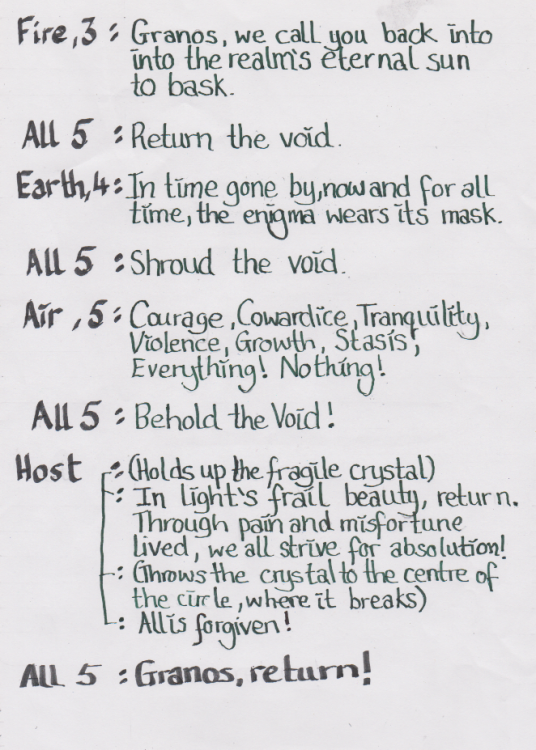 Fire, 3 : Granos, we call you back into
into the realm's eternal sun
to bask.
All 5 : Return the void.
Earth, 4 : In time gone by, now and for all
time, the enigma wears its mask.
All 5 : Shroud the void.
Air, 5 : Courage, Cowardice, Tranquility,
Violence, Growth, Stasis,
Everything! Nothing!
All 5 : Behold the Void!
Host : (Holds up the fragile crystal)
: In light's frail beauty, return.
Through pain and misfortune
lived, we all strive for absolution!
: (Throws the crystal to the centre of
the circle, where it breaks)
: All is forgiven!
All 5 : Granos, return!